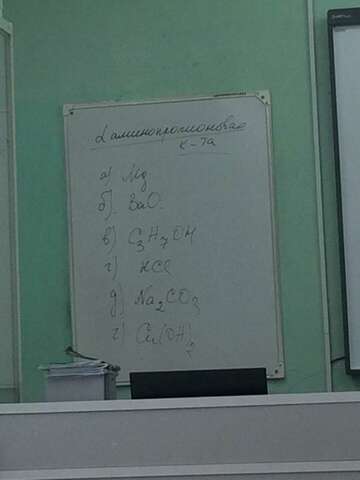 α аминопропионовая
к-та
а) Mg
б). BaO.
в) C₃H₇OH
г) HCl
д) Na₂CO₃
г) Cu(OH)₂